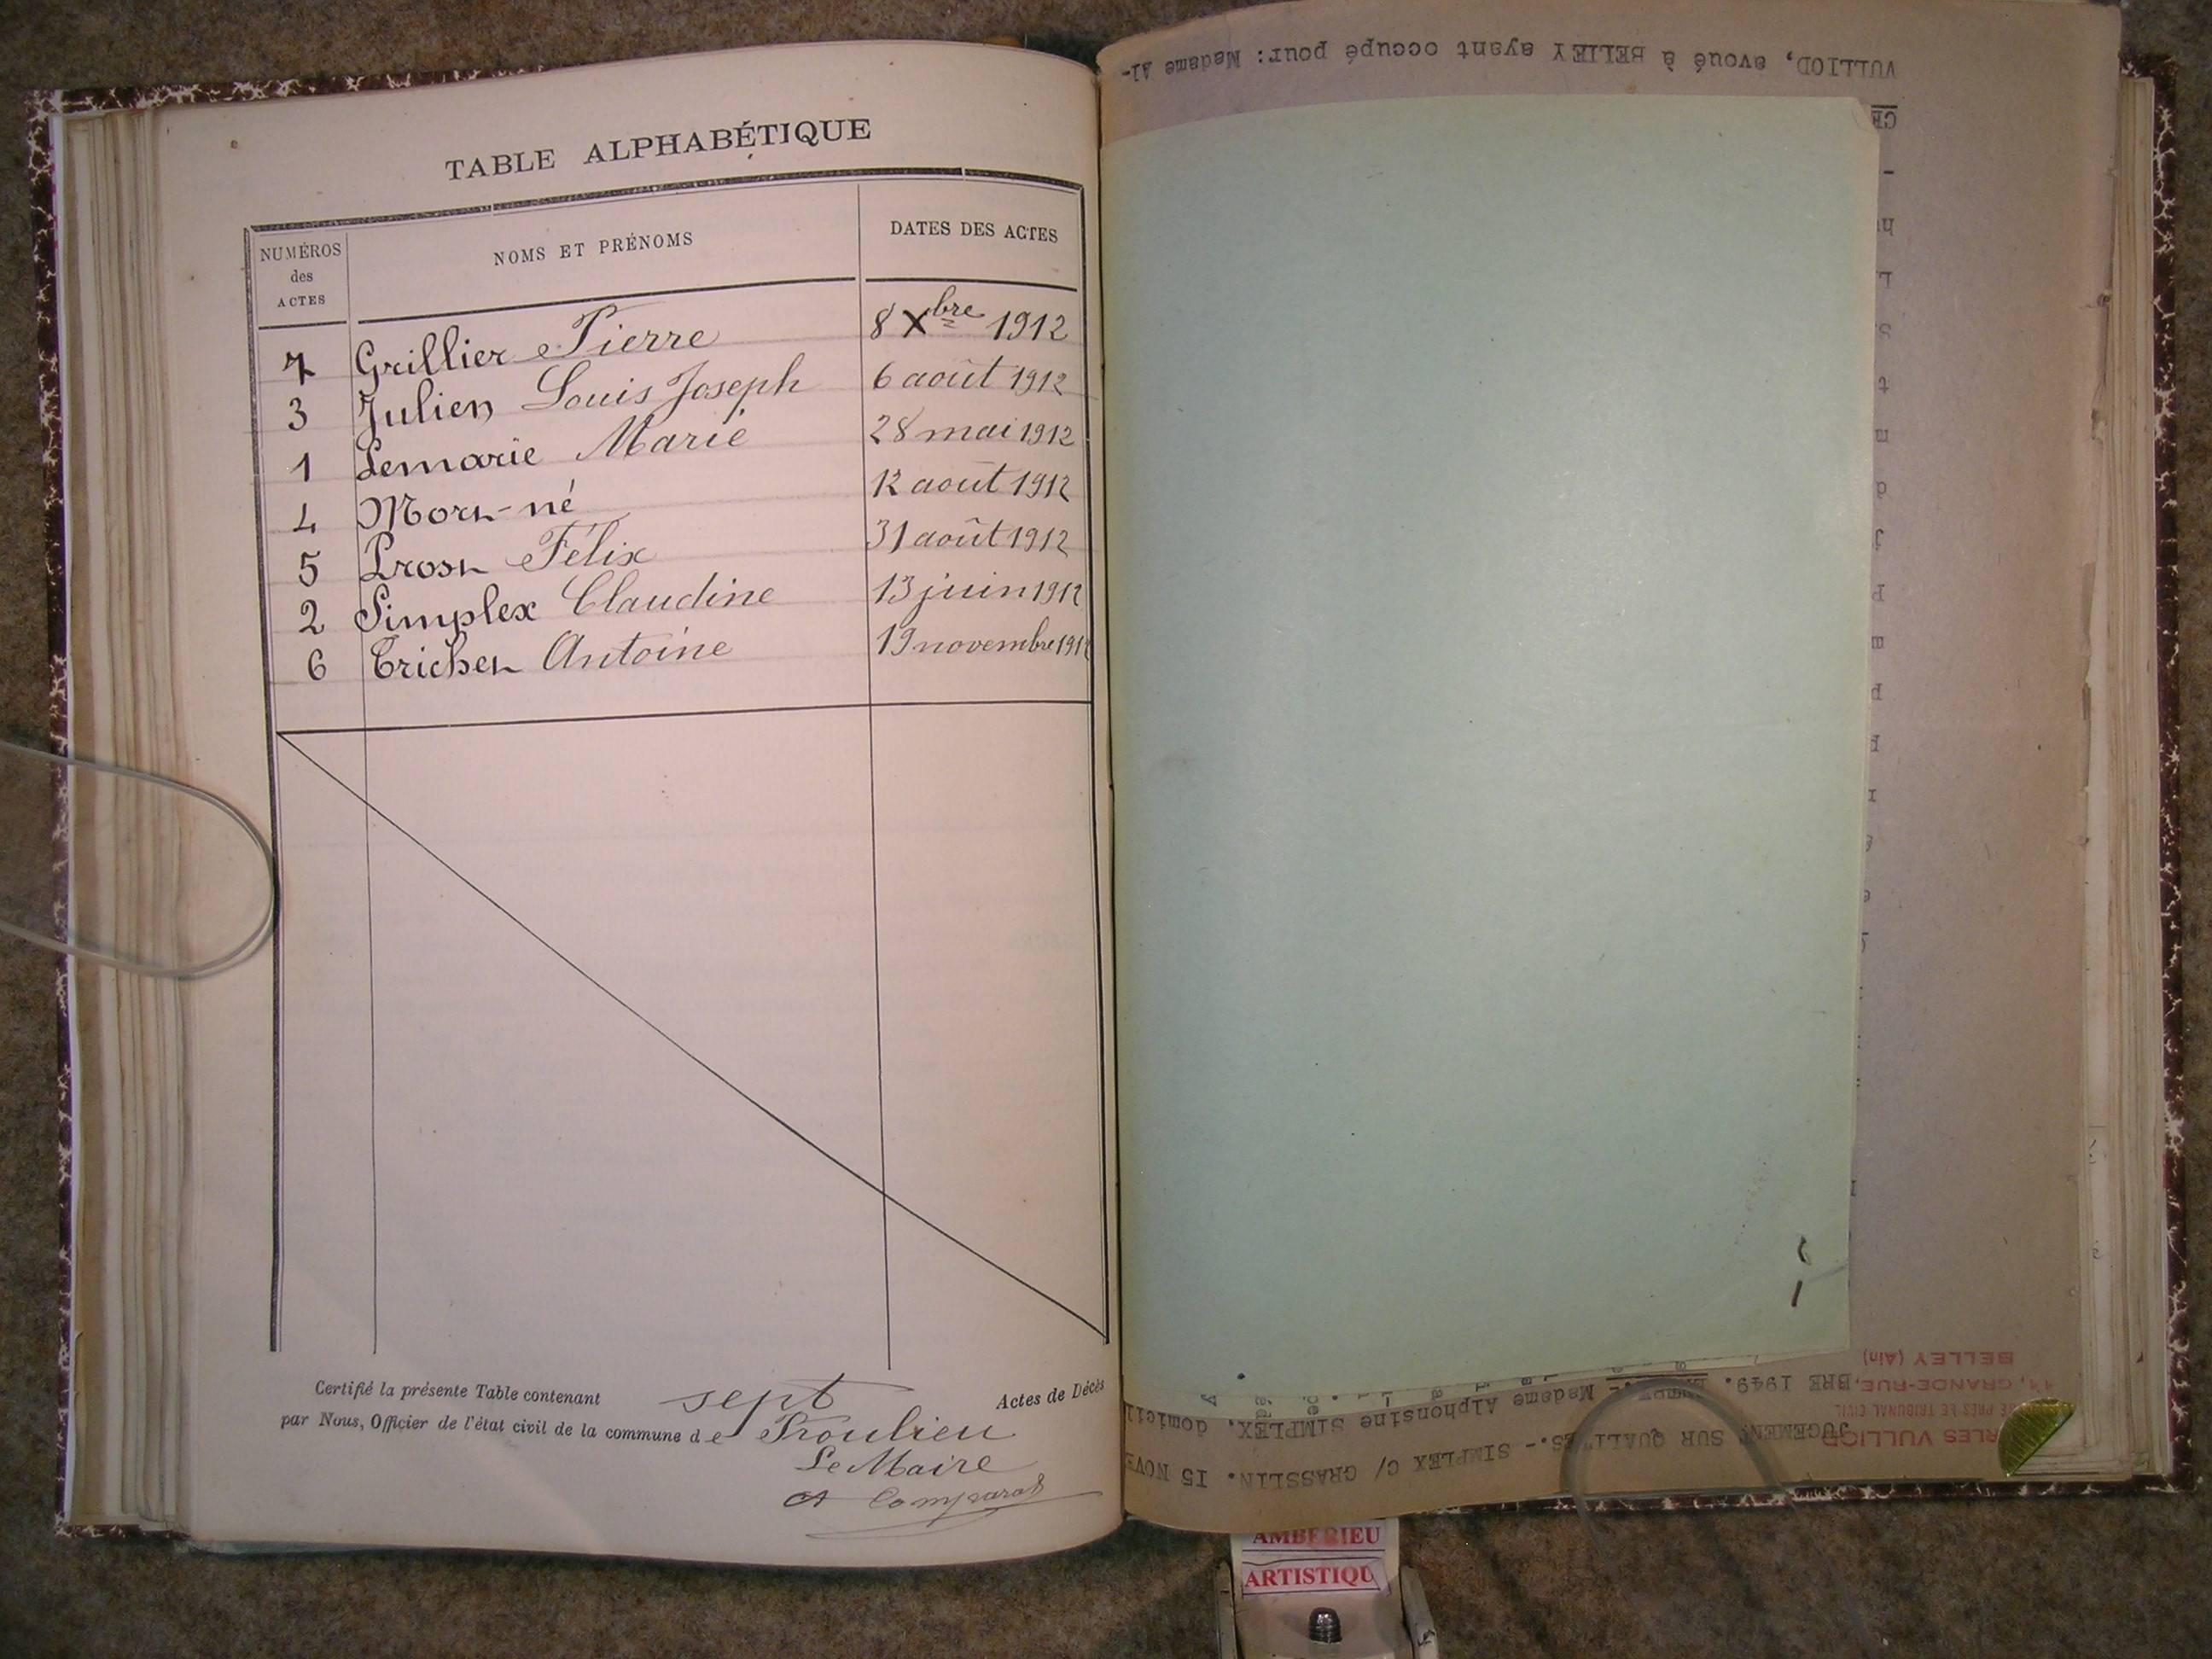 TABLE ALPHABÉTIQUE
NUMÉROS des ACTES NOMS ET PRÉNOMS DATES DES ACTES
7 Grillier Pierre 8 Xbre 1912
3 Julien Louis Joseph 6 août 1912
1 Lemarie Marie 28 mai 1912
4 Mort-né 12 août 1912
5 Prost Félix 31 août 1912
2 Simplex Claudine 13 juin 1912
6 Trichet Antoine 19 novembre 1912
Certifié la présente Table contenant sept Actes de Décès
par Nous, Officier de l'état civil de la commune de Proulieu
Le Maire
Comparat
VULLIOD, avoué à BELLEY ayant occupé pour: Madame Al-
JUGEMENT SUR QUALITES.- SIMPLEX C/ GRASSLIN. 15 NOVE
BRE 1949. Madame Alphonsine SIMPLEX, domicil
RLES VULLIOD
PRÈS LE TRIBUNAL CIVIL
GRANDE-RUE,
BELLEY (Ain)
AMBERIEU
ARTISTIQU